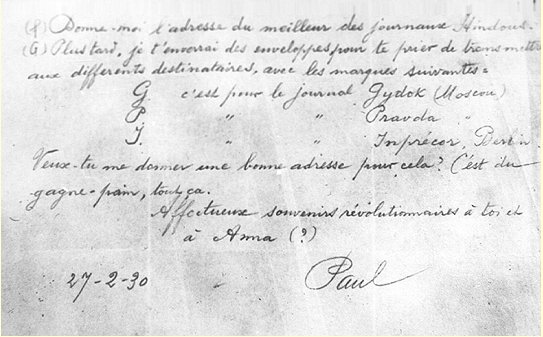 (F) Donne-moi l'adresse du meilleur des journaux Hindous.
(G) Plus tard, je t'enverrai des enveloppes pour te prier de transmettre
aux differents destinataires, avec les marques suivantes =
G. c'est pour le journal Gydok (Moscou)
P. " " Pravda "
I. " " Inprécor, Berlin
Veux-tu me donner une bonne adresse pour cela? C'est du
gagne-pain, tout ça.
Affectueux souvenirs révolutionnaires à toi et
à Anna (?)
27-2-30 Paul